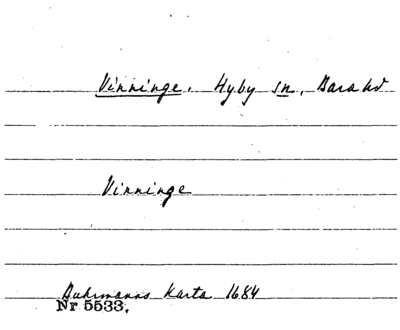 Vinninge. Hyby sn, Bara hd
Vinninge
Buhrmanns Karta 1684
Nr 5533.